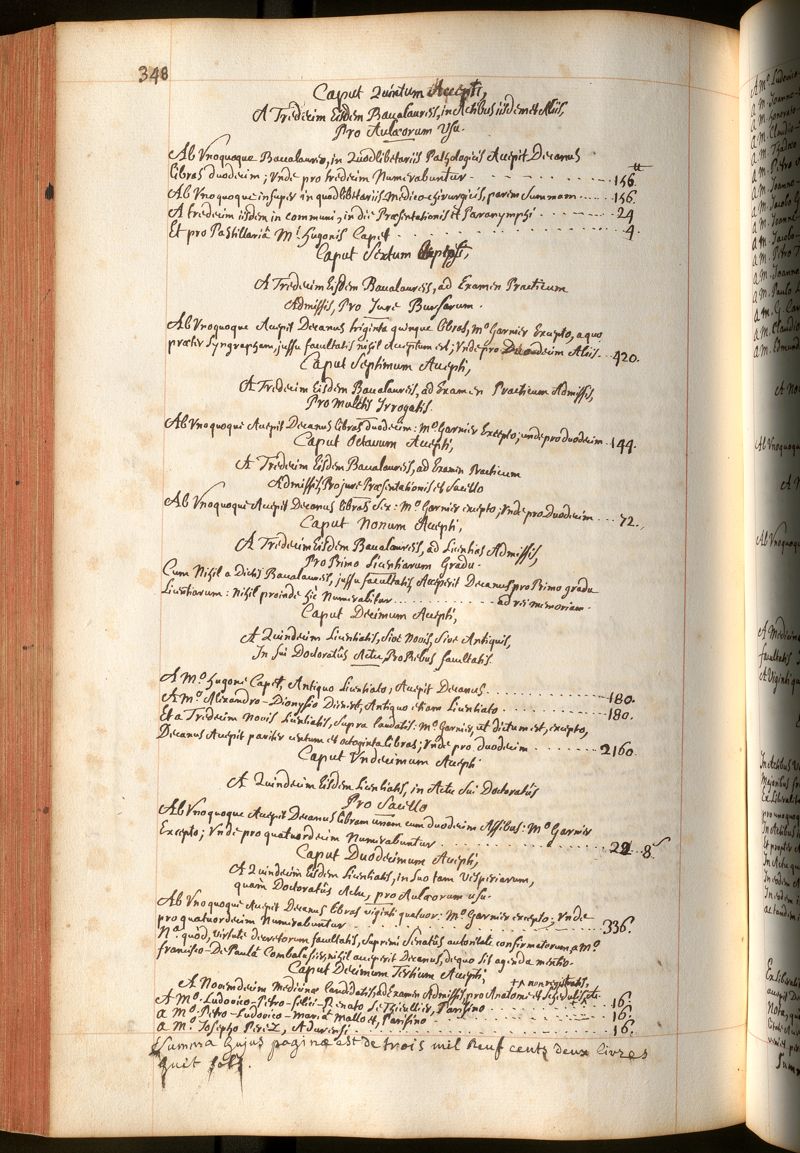 348
Caput Quintum Accepti,
A Tredecim Eisdem Baccalaureis, in Actibus iisdem et Aliis,
Pro Aulæorum Usu.
Ab Unoquoque Baccalaureo, in Quodlibetariis Pathologicis Accepit Decanus
libras duodecim; Unde pro tredecim Numerabuntur - 156.
Ab Unoquoque insuper in quodlibetariis Medico-chirurgicis, parem Summam - 156.
A tredecim iisdem in communi, in die Præsentationis et Paranymphi - 24
Et pro Pastillariâ Mi Hugonis Capet - 4.
Caput Sextum Accepti,
A Tredecim Eisdem Baccalaureis, ad Examen Practicum
Admissis, Pro Jure Bursarum.
Ab Unoquoque Accepit Decanus triginta quinque libras, Mo Garnier Excepto, a quo
præter Syngrapham, jussu facultatis nihil Acceptum est; Unde pro Duodecim Aliis - 420.
Caput Septimum Accepti,
A Tredecim Eisdem Baccalaureis, ad Examen Practicum Admissis,
Pro Multis Irrogatis.
Ab Unoquoque Accepit Decanus libras duodecim: Mo Garnier Excepto; unde pro duodecim - 144.
Caput Octavum Accepti,
A Tredecim Eisdem Baccalaureis, ad Examen Practicum
Admissis, Pro jure Præsentationis et Sacello
Ab Unoquoque Accepit Decanus libras Sex: Mo Garnier excepto; Unde pro Duodecim - 72.
Caput Nonum Accepti,
A Tredecim Eisdem Baccalaureis, ad Licentias Admissis,
Pro Primo Licentiarum Gradu.
Cum Nihil a Dictis Baccalaureis, jussu facultatis Acceperit Decanus pro Primo gradu
Licentiarum: Nihil proinde hîc Numerabitur - ad rei memoriam.
Caput Decimum Accepti,
A Quindecim Licentiatis, Sive Novis, Sive Antiquis,
In Sui Doctoratûs Actu, Pro Rebus facultatis.
A Mo Hugone Capet, Antiquo Licentiato, Accepit Decanus - 180.
A Mo Alexandro-Dionysio Dienert, Antiquo etiam Licentiato - 180.
Et a Tredecim Novis Licentiatis, Supra laudatis: Mo Garnier, ut dictum est, excepto,
Decanus Accepit pariter centum et octoginta libras; Unde pro duodecim - 2160.
Caput Undecimum Accepti
A Quindecim Eisdem Licentiatis, in Actu Sui Doctoratûs
Pro Sacello
Ab Unoquoque Accepit Decanus libram unam cum duodecim Assibus: Mo Garnier
Excepto; Unde pro quatuordecim Numerabuntur - 22 8s
Caput Duodecimum Accepti,
A Quindecim Eisdem Licentiatis, in Suo tam Vesperiarum,
quam Doctoratûs Actu, pro Aulæorum usu.
Ab Unoquoque Accepit Decanus libras viginti quatuor: Mo Garnier excepto; Unde
pro quatuordecim Numerabuntur - 336.
Na quod, virtute decretorum facultatis, Supremi Senatûs autoritate confirmatorum, a Mo
francisco-De Paulâ Combalusier, nihil acceperit Decanus, de quo sit agenda mentio.
Caput Decimum Tertium Accepti,
+ non registratis,
A Novemdecim Medicinæ Candidatis, ad Examen Admissis, pro Anatome et Schedulis, etc
A Mo Ludovico-Petro-Felici-Renato Le Thieullier, Parisino - 16.
a Mo Petro-Ludovico-Mariâ Malloet, Parisino - 16.
a Mo Josepho Perez, Adurensi - 16.
Summa hujus paginæ est de trois mil Neuf cents deux livres
huit sols.